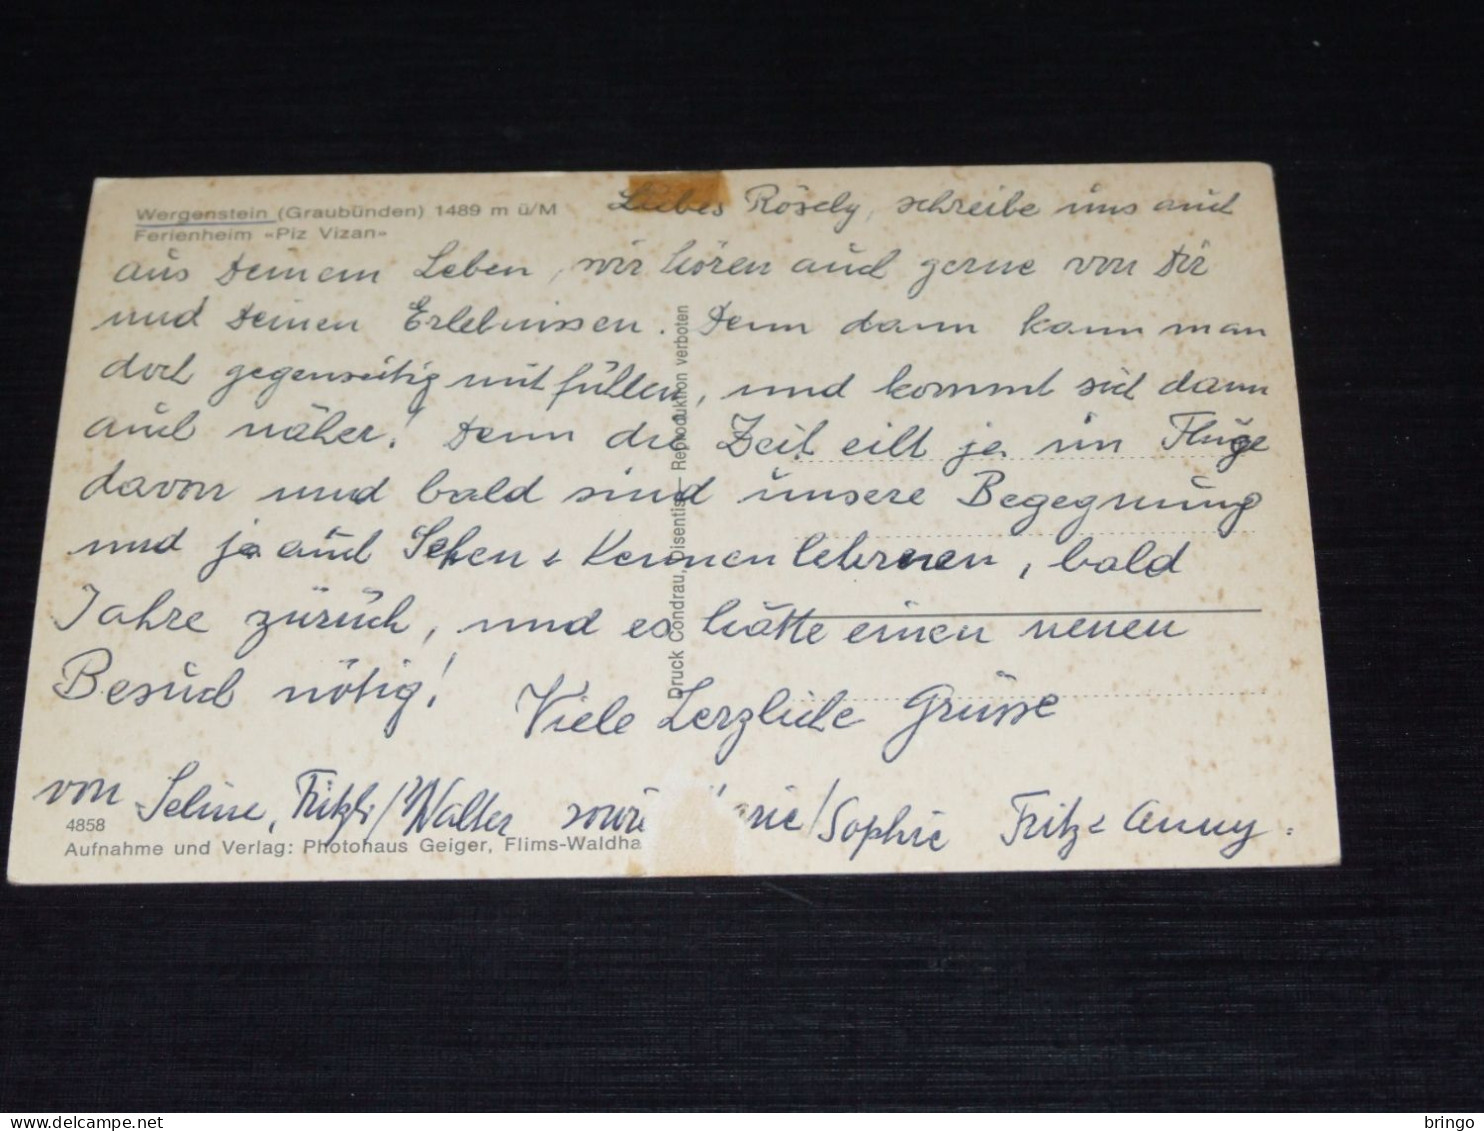 Wergenstein (Graubünden) 1489 m ü/M
Ferienheim «Piz Vizan»
Liebes Rösely, schreibe uns auch
aus Deinem Leben, wir hören auch gerne von Dir
und Deinen Erlebnissen. Denn dann kann man
doch gegenseitig mit fühlen, und kommt sich dann
auch näher! Denn die Zeit eilt ja im Fluge
davon und bald sind unsere Begegnung
und ja auch Sehen & Kennen lehrnen, bald
Jahre zürück, und es hätte einen neuen
Besuch nötig!
Viele Herzliche Grüsse
von Seline, Fritzli / Walter sowie /Sophie Fritz & Anny.
4858
Aufnahme und Verlag: Photohaus Geiger, Flims-Waldha
Druck Condrau, Disentis – Reproduktion verboten
bringo